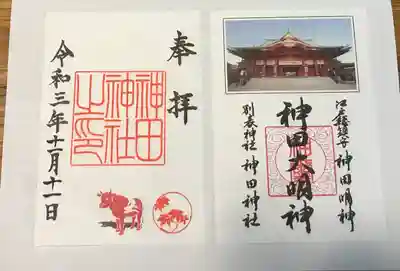 奉拝
神田
神社
之印
令和三年十一月十一日
江戸総鎮守 神田明神
神田大明神
別表神社 神田神社